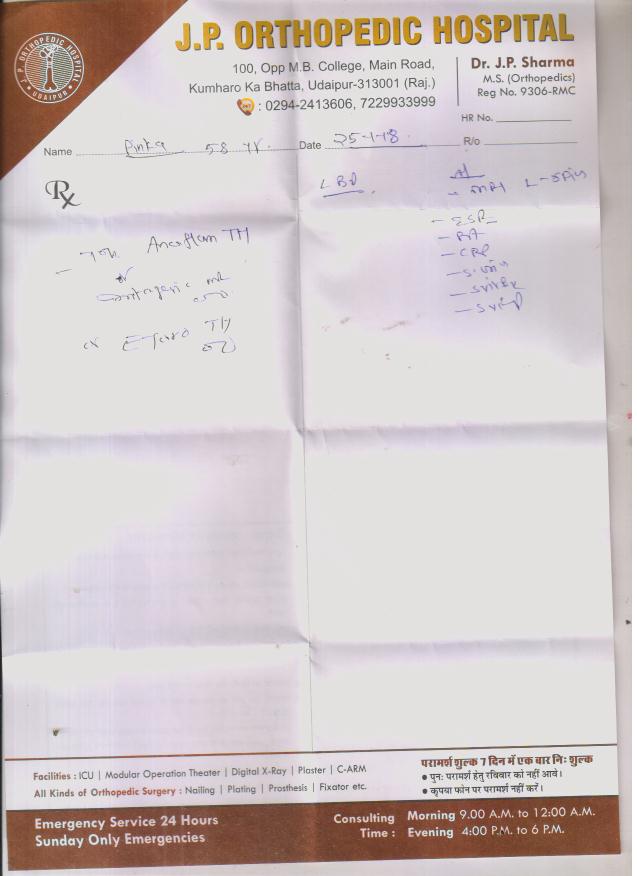 J.P. ORTHOPEDIC HOSPITAL
J. P. ORTHOPEDIC HOSPITAL
UDAIPUR
100, Opp M.B. College, Main Road,
Kumharo Ka Bhatta, Udaipur-313001 (Raj.)
: 0294-2413606, 7229933999
Dr. J.P. Sharma
M.S. (Orthopedics)
Reg No. 9306-RMC
HR No.
Name 58 Yr Date 25-1-18 R/o
Rx
LBP
- MRI L-Spine
- ESR
- RA
- CRP
TH
TH
Facilities : ICU | Modular Operation Theater | Digital X-Ray | Plaster | C-ARM
All Kinds of Orthopedic Surgery : Nailing | Plating | Prosthesis | Fixator etc.
परामर्श शुल्क 7 दिन में एक बार निः शुल्क
• पुनः परामर्श हेतु रविवार को नहीं आवे।
• कृपया फोन पर परामर्श नहीं करें।
Emergency Service 24 Hours
Sunday Only Emergencies
Consulting Time : Morning 9.00 A.M. to 12:00 A.M.
Evening 4:00 P.M. to 6 P.M.